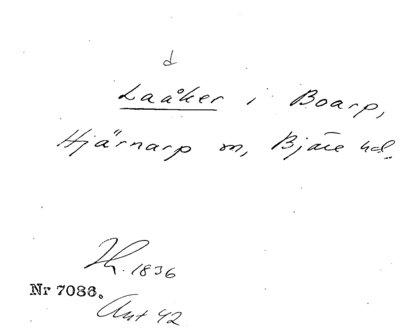 d
Laåker i Boarp,
Hjärnarp sn, Bjäre hd.
Th. 1836
Nr 7086.
Ant 42